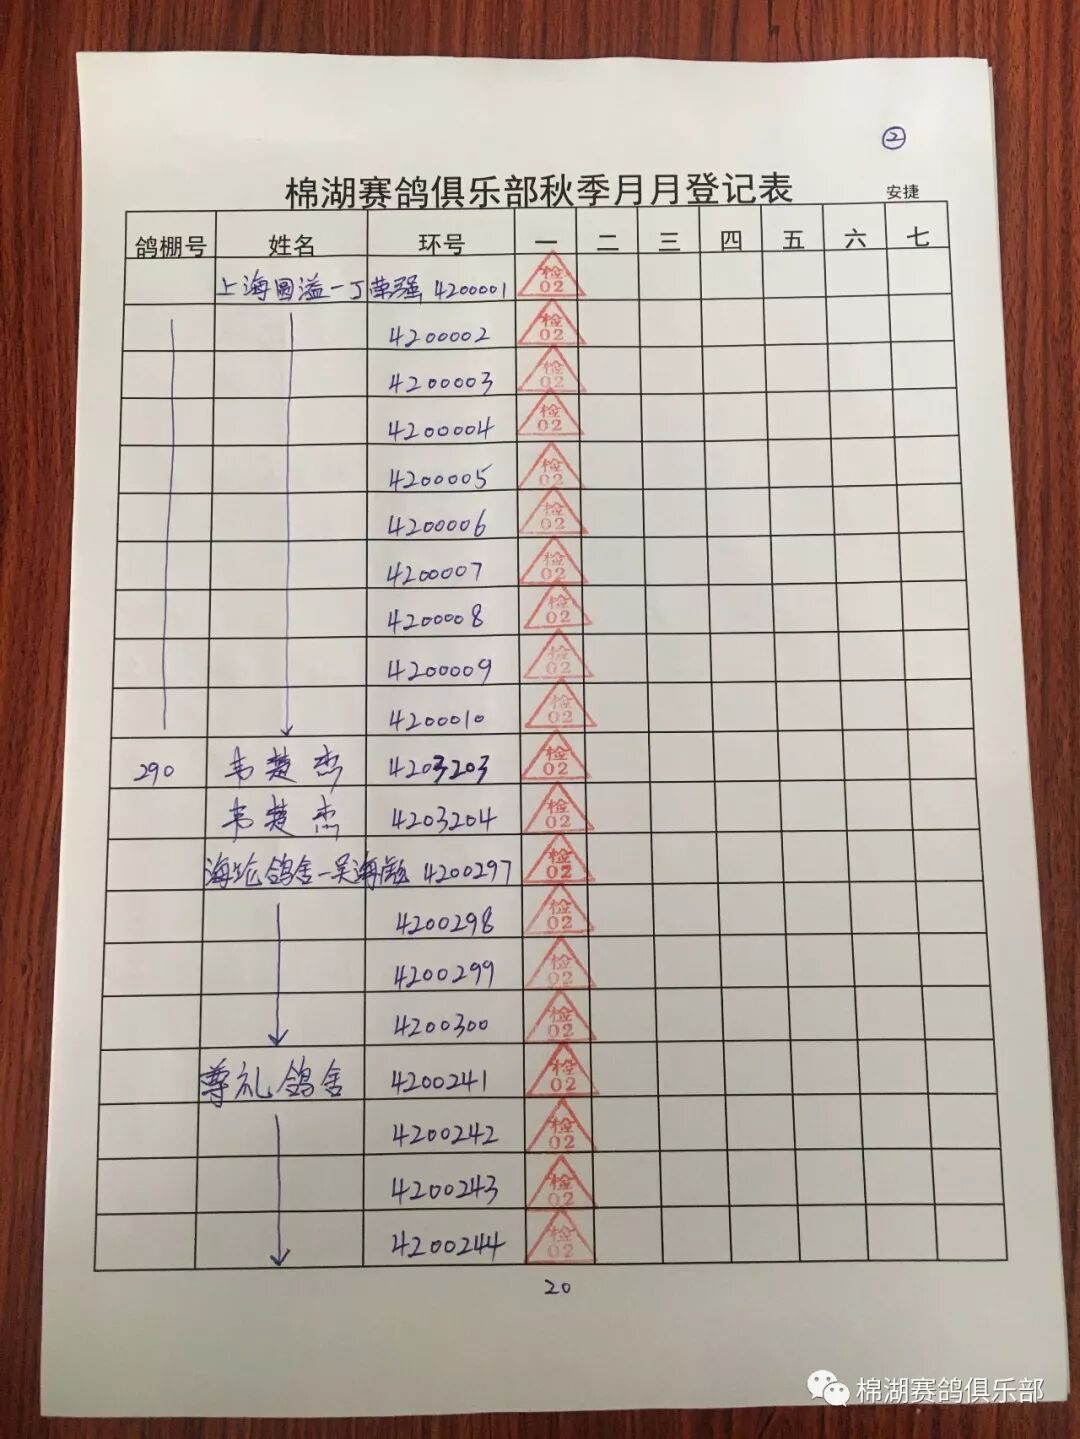 ②
棉湖赛鸽俱乐部秋季月月登记表 安捷
鸽棚号 姓名 环号 一 二 三 四 五 六 七
上海圆溢-丁荣强 4200001 检02
4200002 检02
4200003 检02
4200004 检02
4200005 检02
4200006 检02
4200007 检02
4200008 检02
4200009 检02
4200010 检02
290 韦楚杰 4203203 检02
韦楚杰 4203204 检02
海纶鸽舍-吴海 4200297 检02
4200298 检02
4200299 检02
4200300 检02
尊礼鸽舍 4200241 检02
4200242 检02
4200243 检02
4200244 检02
20
棉湖赛鸽俱乐部